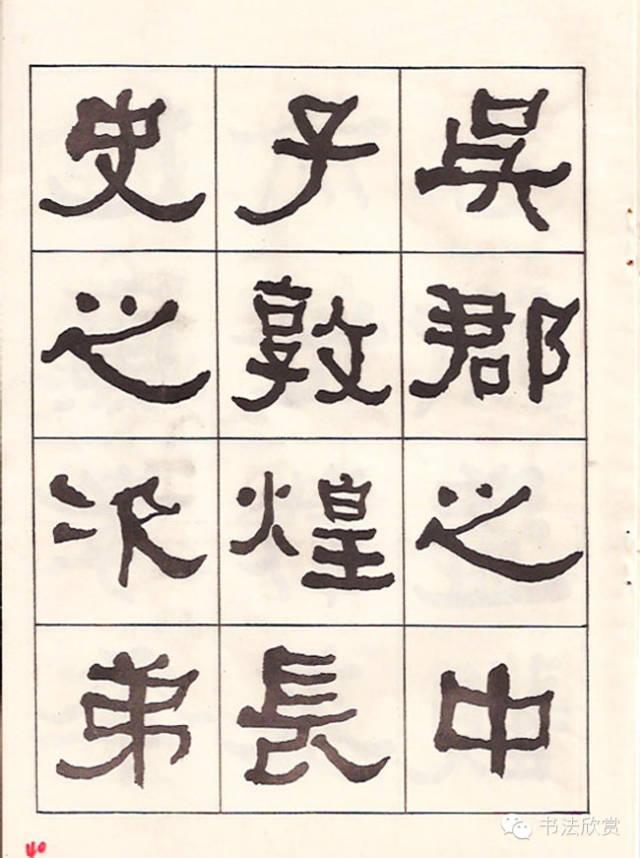 吳郡之中
子敦煌長
史之次弟
40
书法欣赏